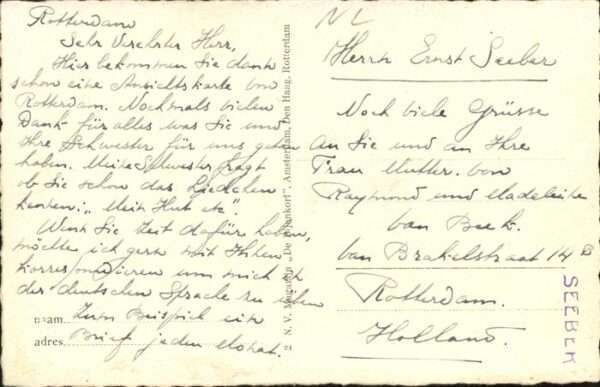 Rotterdam
Sehr Verehrter Herr,
Hier bekommen Sie dank
schon eine Ansichtskarte von
Rotterdam. Nochmals vielen
Dank für alles was Sie und
Ihre Schwester für uns getan
haben. Meine Schwester fragt
ob Sie schon das Liedchen
kanten: „Mein Hut etc".
Wenn Sie Zeit dafür haben,
möchte ich gern mit Ihnen
korrespondieren um mich in
der deutschen Sprache zu üben
naam. Zum Beispiel ein
adres. Brief jeden Monat.
N.V. „De Spaukort", Amsterdam, Den Haag, Rotterdam
NL
Herrn Ernst Seeber
Noch viele Grüsse
an Sie und an Ihre
Frau Mutter. von
Raymond und Madeleine
van Beek.
van Brakelstraat 14 B
Rotterdam.
Holland.
SEEBER